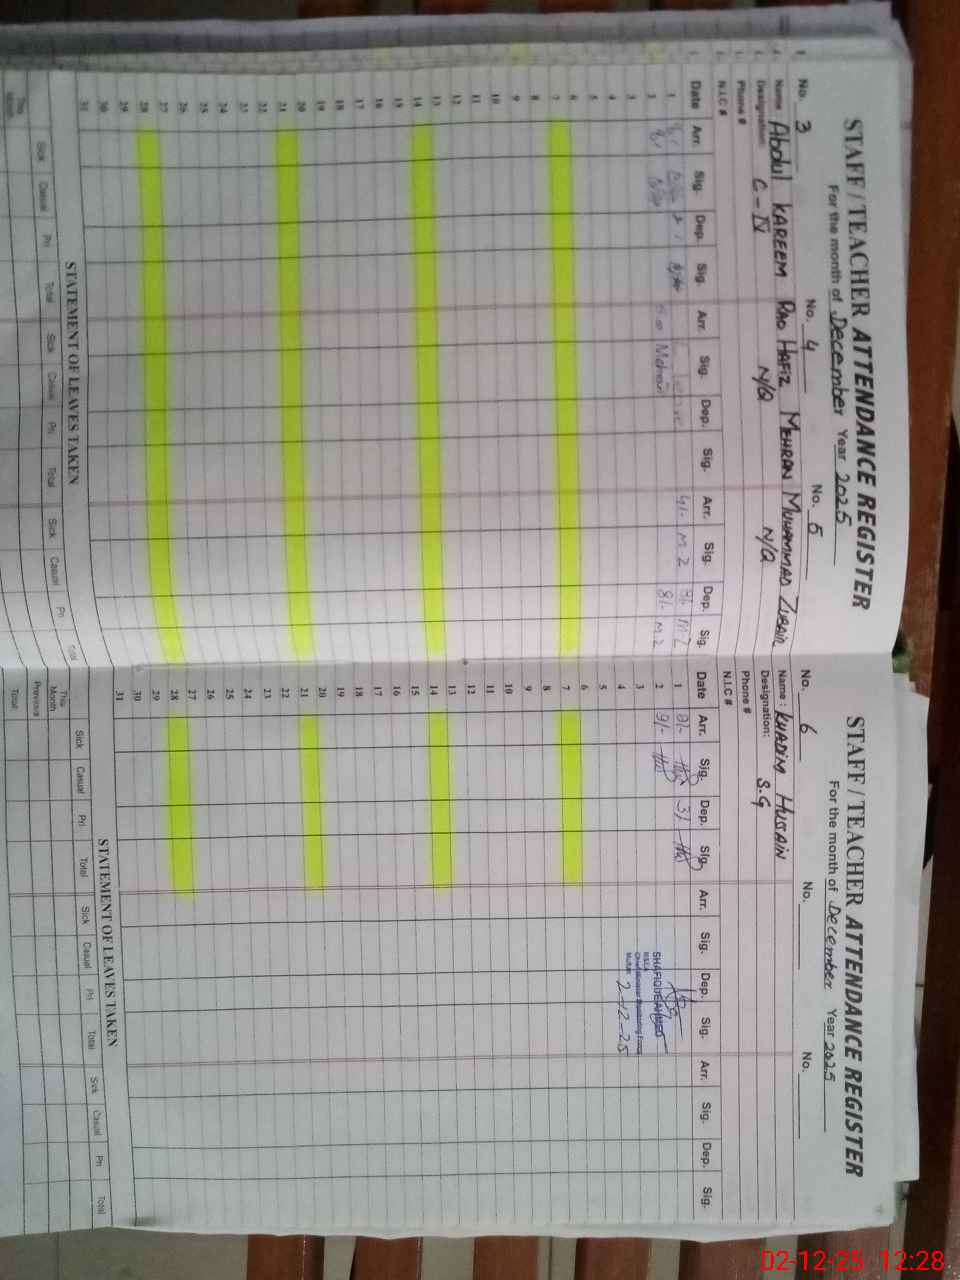 STAFF / TEACHER ATTENDANCE REGISTER
For the month of December Year 2025
No. 3 No. 4 No. 5
Name Abdul KAREEM RAO HAFIZ MEHRAN MUHAMMAD ZUBAIR
Designation: C-IV N/Q N/Q
Phone #
N.I.C #
Date Arr. Sig. Dep. Sig. Arr. Sig. Dep. Sig. Arr. Sig. Dep. Sig.
1 8/- 4/- M.Z 8/- MZ
2 8/- Mehran 8/- M.Z
3
4
5
6
7
8
9
10
11
12
13
14
15
16
17
18
19
20
21
22
23
24
25
26
27
28
29
30
31
STATEMENT OF LEAVES TAKEN
Sick Casual Pri Total Sick Casual Pri Total Sick Casual Pri Total
This Month
STAFF / TEACHER ATTENDANCE REGISTER
For the month of December Year 2025
No. 6 No. No.
Name : KHADIM HUSAIN
Designation: S.G
Phone #
N.I.C #
Date Arr. Sig. Dep. Sig. Arr. Sig. Dep. Sig. Arr. Sig. Dep. Sig.
1 9/- 3/-
2 9/- SHAFIQUE AHMED
3 Chief Minister Monitoring Force
4 2-12-25
5
6
7
8
9
10
11
12
13
14
15
16
17
18
19
20
21
22
23
24
25
26
27
28
29
30
31
STATEMENT OF LEAVES TAKEN
Sick Casual Pri Total Sick Casual Pri Total Sick Casual Pri Total
This Month
Previous
Total
02-12-25 12:28